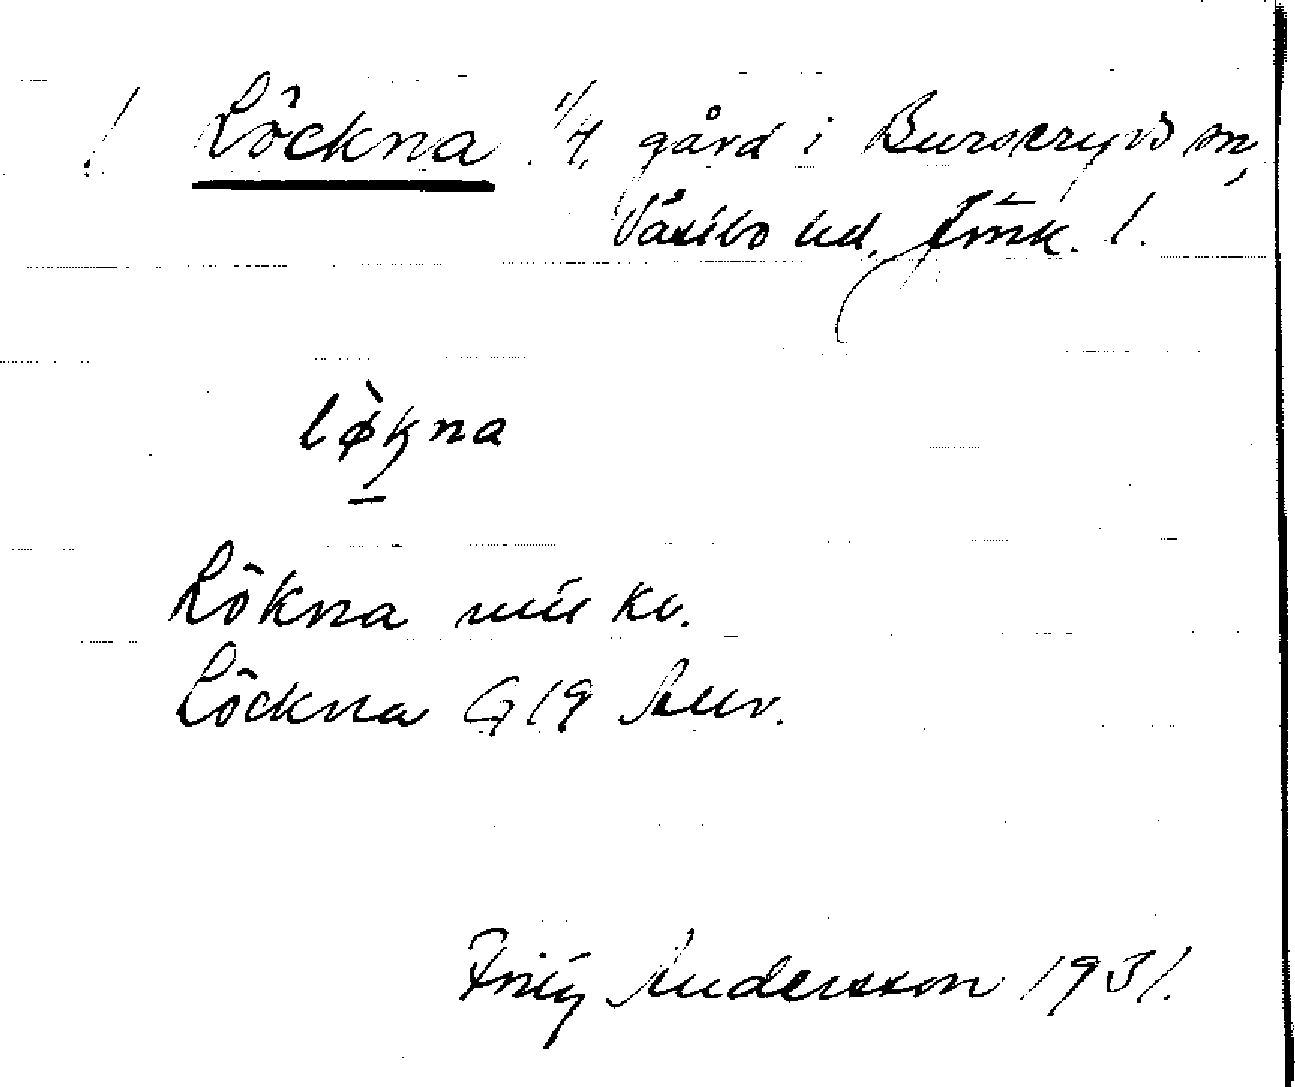 ! Löckna 1/4 gård i Burseryds sn,
Västbo hd, Jmk. l.
lø̀kna
Lökna mil kv.
Löckna G 19
Andersson 1931.